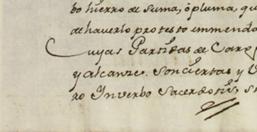 bo hierro de suma, ó pluma, q
de haverlo protesto enmendo
Cuyas Partidas de Carg
y alcanze. Son ciertas, y
ro Inverbo Sacerdotis, s